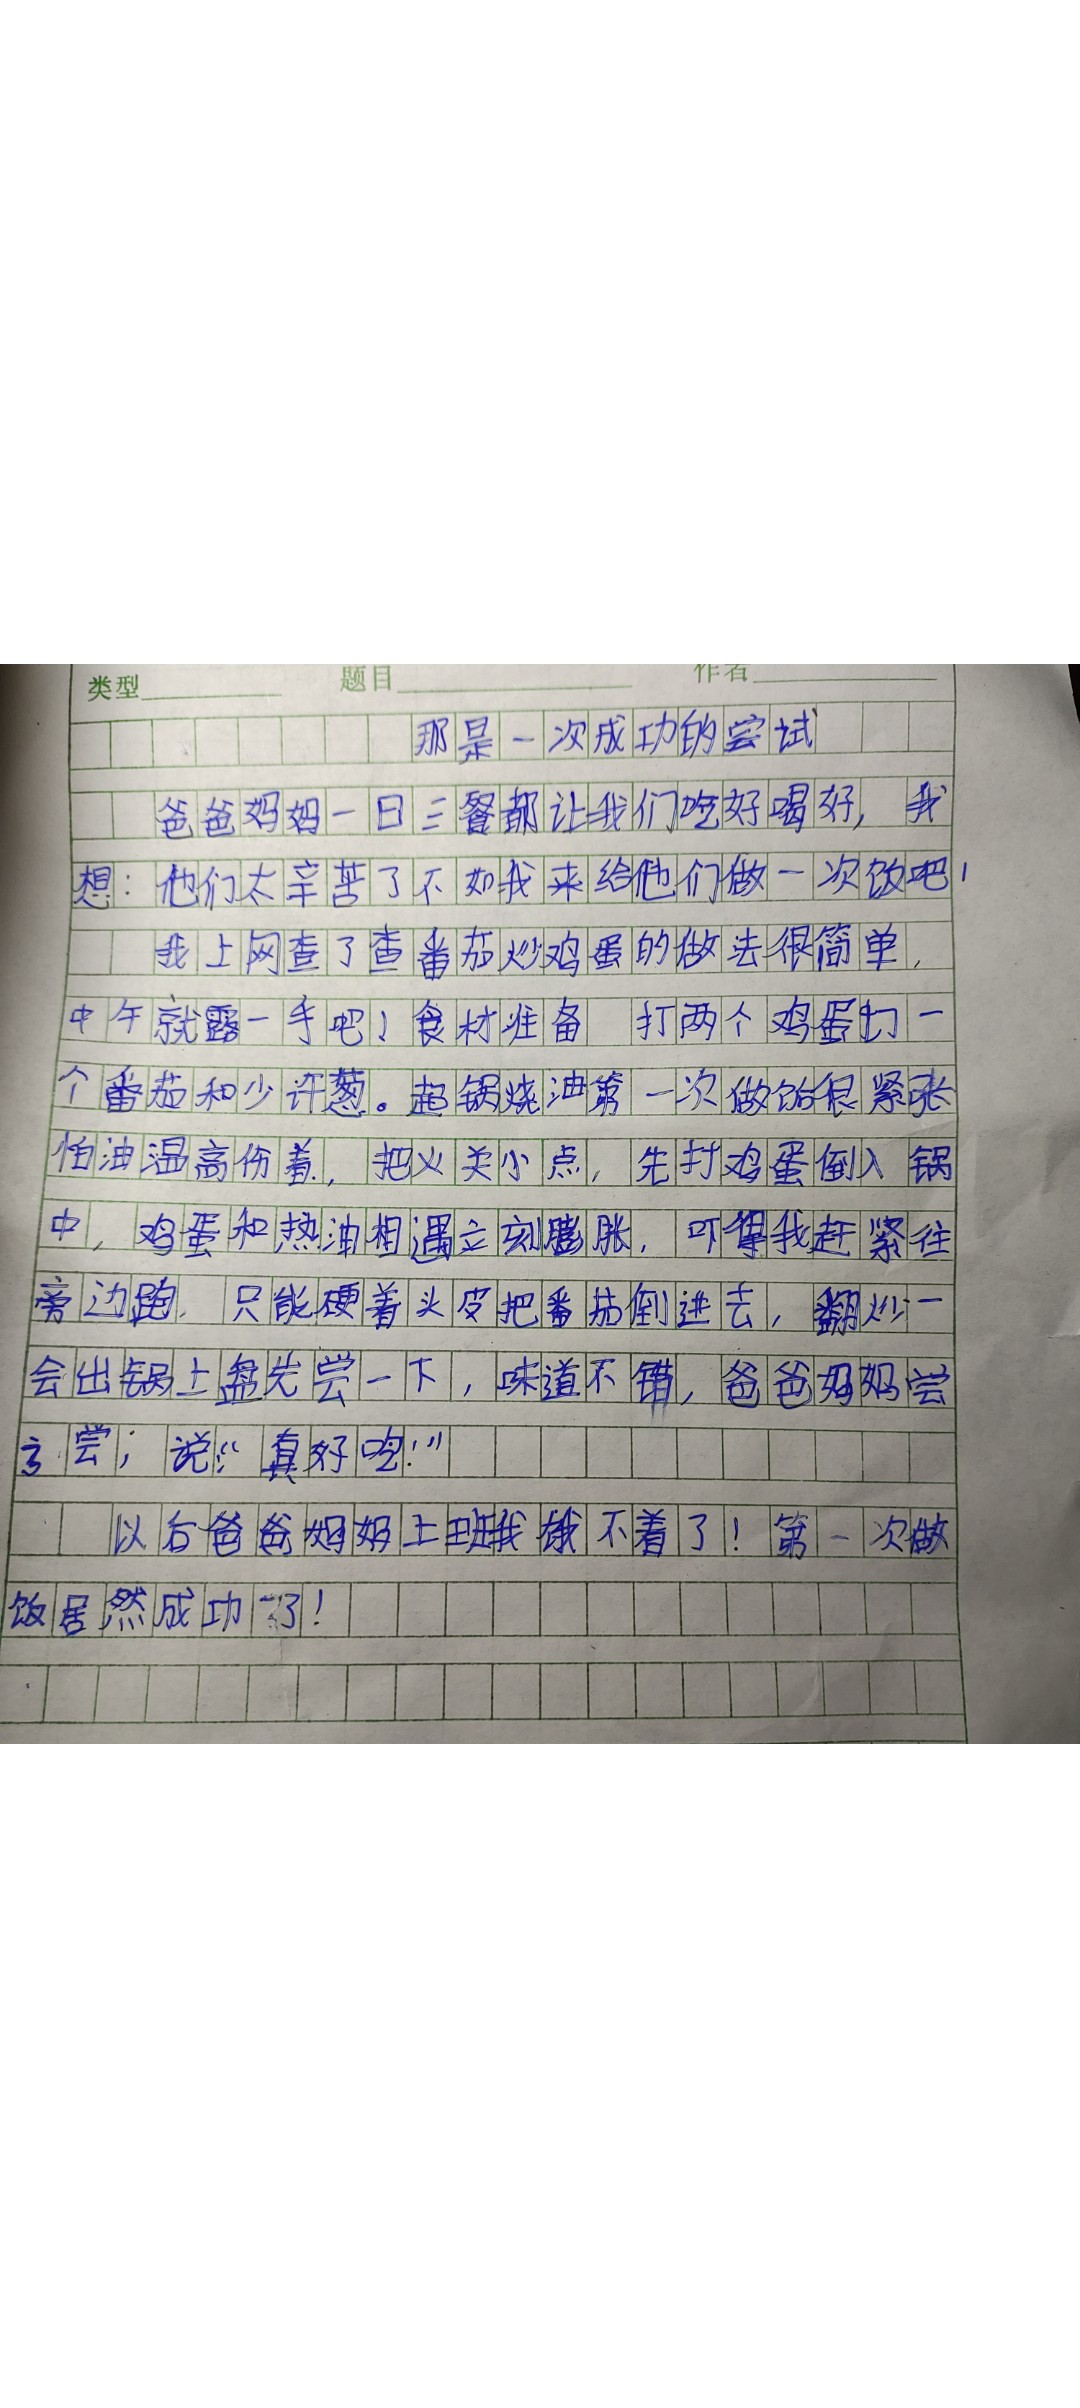 类型 题目 作者
那是一次成功的尝试
爸爸妈妈一日三餐都让我们吃好喝好,我
想:他们太辛苦了不如我来给他们做一次饭吧!
我上网查了查番茄炒鸡蛋的做法很简单,
中午就露一手吧!食材准备 打两个鸡蛋切一
个番茄和少许葱。起锅烧油第一次做饭很紧张
怕油温高伤着,把火关小点,先打鸡蛋倒入锅
中,鸡蛋和热油相遇立刻膨胀,吓得我赶紧往
旁边跑,只能硬着头皮把番茄倒进去,翻炒一
会出锅上盘先尝一下,味道不错,爸爸妈妈尝
了尝;说:“真好吃!”
以后爸爸妈妈上班我饿不着了!第一次做
饭居然成功了!